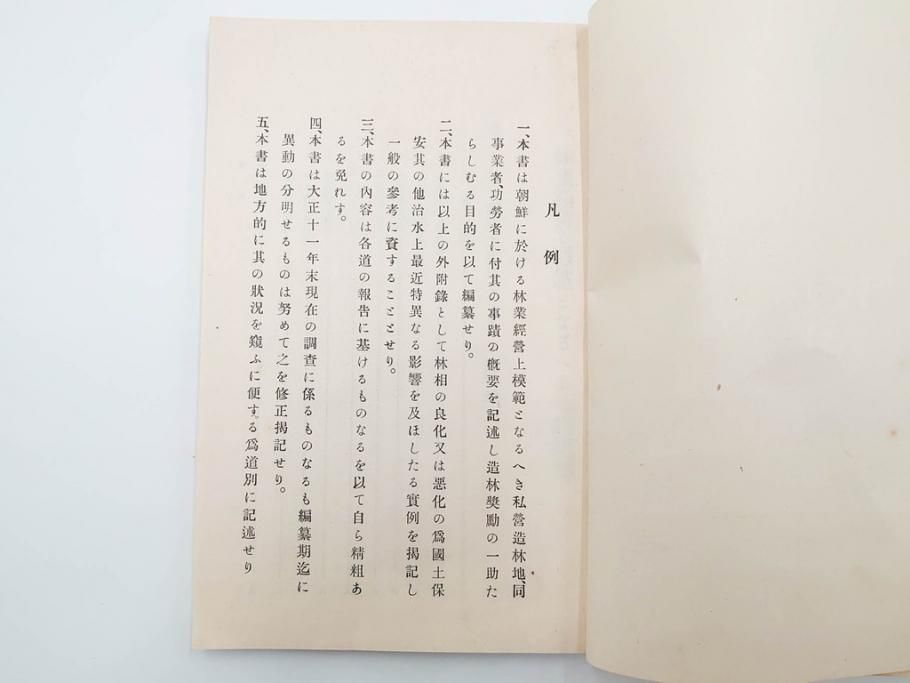 凡例
一、本書は朝鮮に於ける林業經營上模範となるへき私營造林地、同
事業者、功勞者に付其の事蹟の概要を記述し造林奬勵の一助た
らしむる目的を以て編纂せり。
二、本書には以上の外附錄として林相の良化又は惡化の爲國土保
安其の他治水上最近特異なる影響を及ほしたる實例を揭記し
一般の參考に資することとせり。
三、本書の內容は各道の報告に基けるものなるを以て自ら精粗あ
るを免れす。
四、本書は大正十一年末現在の調査に係るものなるも編纂期迄に
異動の分明せるものは努めて之を修正揭記せり。
五、本書は地方的に其の狀況を窺ふに便する爲道別に記述せり